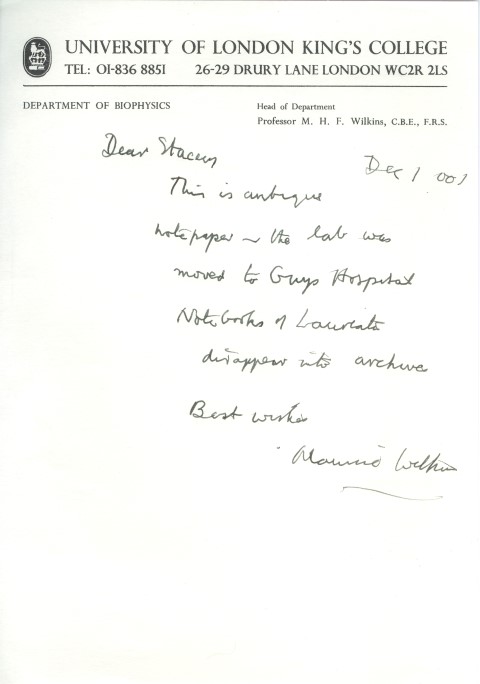 UNIVERSITY OF LONDON KING'S COLLEGE
TEL: 01-836 8851 26-29 DRURY LANE LONDON WC2R 2LS
DEPARTMENT OF BIOPHYSICS
Head of Department
Professor M. H. F. Wilkins, C.B.E., F.R.S.
Dear Stacey
Dec 1 001
This is antique
notepaper ~ the lab was
moved to Guys Hospital
Notebooks of Laureate
disappear into archive
Best wishes
Maurice Wilkins